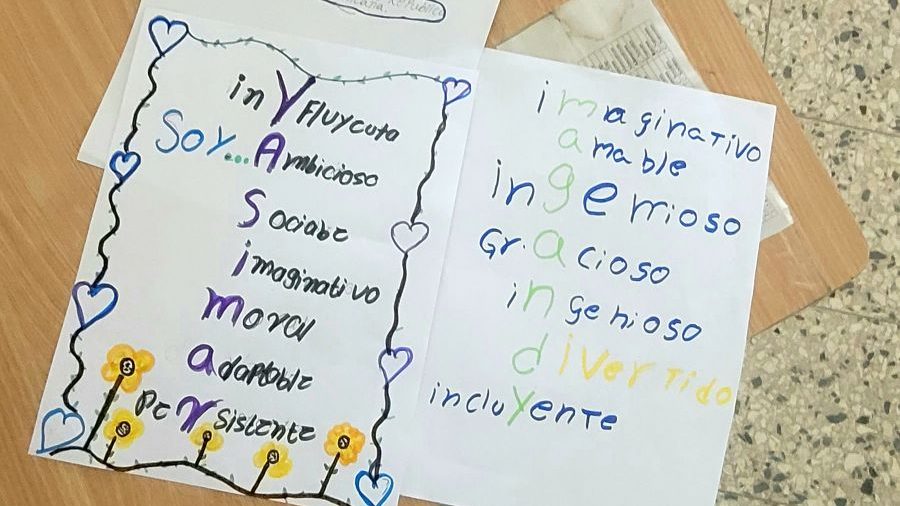 República
inYFluycuta
Soy... Ambicioso
Sociabe
imaginativo
moral
adaptable
Persistente
imaginativo
amable
ingenioso
Gracioso
ingenioso
diverTido
incluyenTe